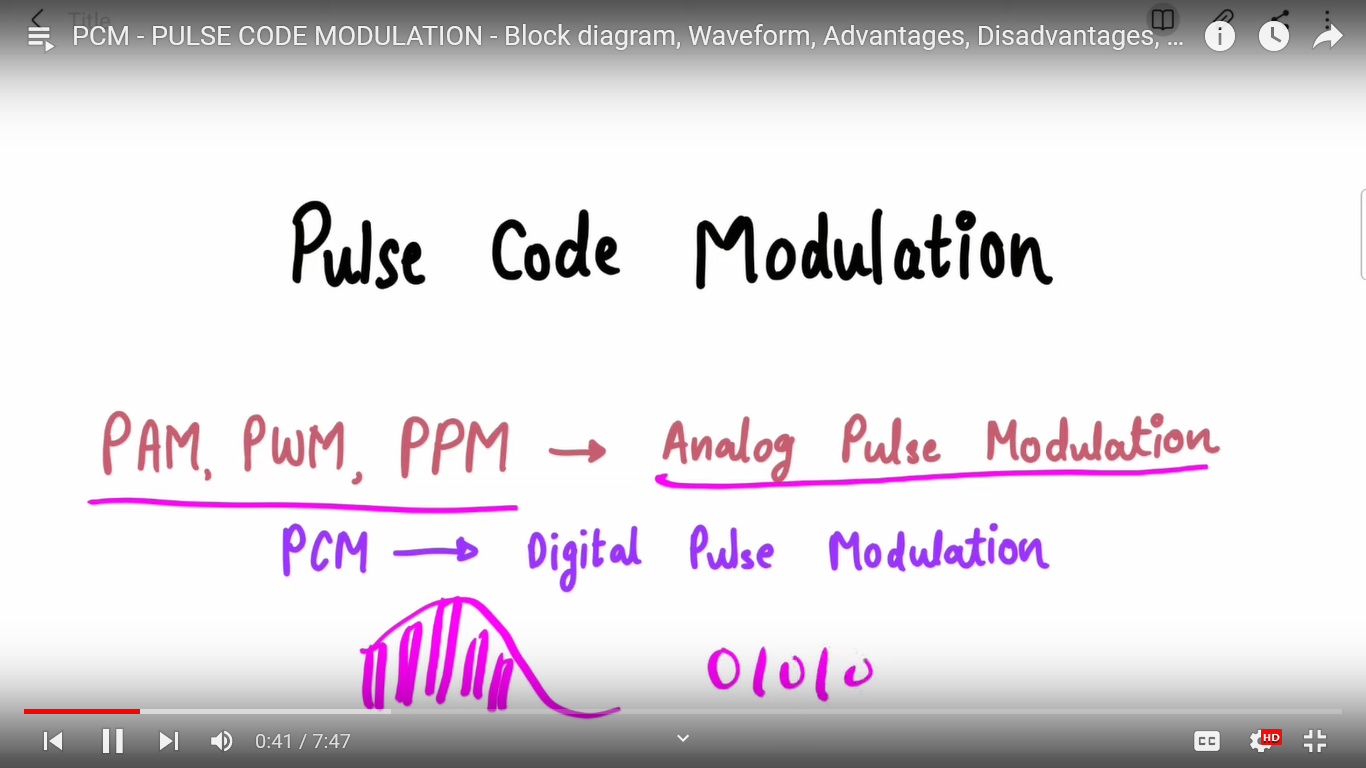 Title
PCM - PULSE CODE MODULATION - Block diagram, Waveform, Advantages, Disadvantages, ...
Pulse Code Modulation
PAM, PWM, PPM → Analog Pulse Modulation
PCM → Digital Pulse Modulation
01010
0:41 / 7:47
CC
HD